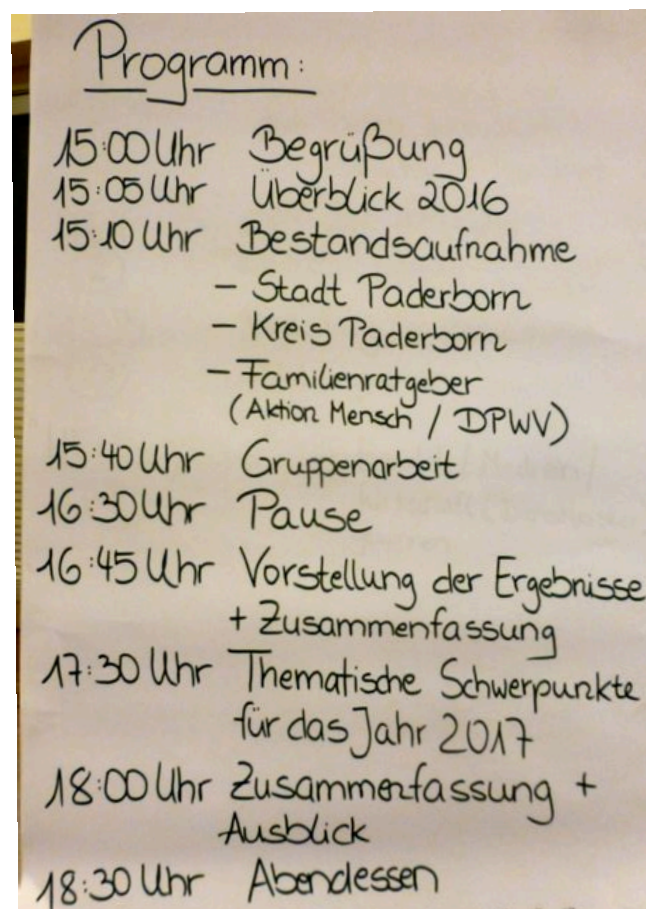 Programm:
15:00 Uhr Begrüßung
15:05 Uhr Überblick 2016
15:10 Uhr Bestandsaufnahme
- Stadt Paderborn
- Kreis Paderborn
- Familienratgeber
(Aktion Mensch / DPWV)
15:40 Uhr Gruppenarbeit
16:30 Uhr Pause
16:45 Uhr Vorstellung der Ergebnisse
+ Zusammenfassung
17:30 Uhr Thematische Schwerpunkte
für das Jahr 2017
18:00 Uhr Zusammenfassung +
Ausblick
18:30 Uhr Abendessen